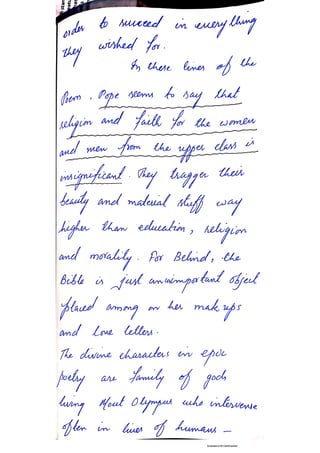 order to succeed in everything
they wished for.
In these lines of the
Poem, Pope seems to say that
religion and faith for the women
and men from the upper class is
insignificant. They tragger their
beauty and material stuff way
higher than education, religion
and morality. For Belind, the
Bible is just an unimportant object
placed among on her make ups
and love letters.
The divine characters in epic
poetry are family of gods
living Mout Olympus who intervense
often in lives of humans -